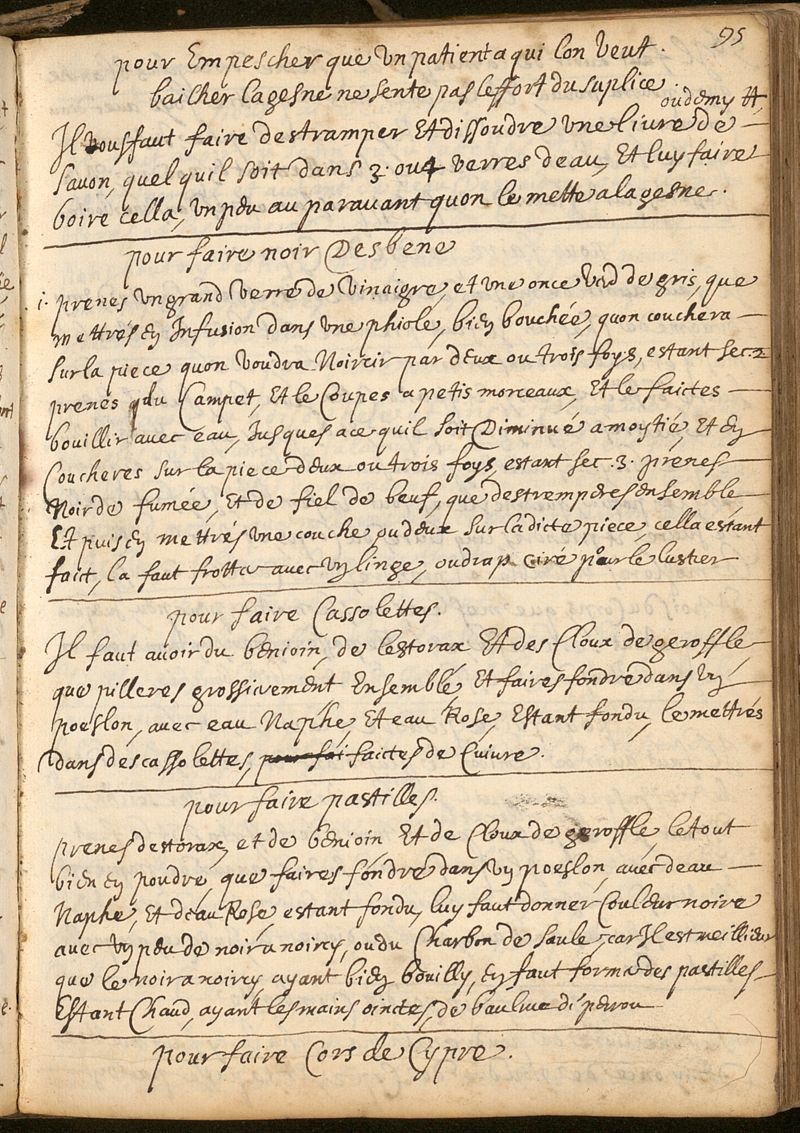 95
pour Empescher que un patient a qui lon veut
bailher la gesne ne sente pas leffort du suplice
oudemy tt
Il vous faut faire destramper Et dissoudre une livre de
savon, quel quil soit dans 3. ou 4 verres deau, Et luy faire
boire cella, un peu au paravant quon le mette a la gesne.
pour faire noir Desbene
1. prenes un grand verre de vinaigre, et une once verd de gris, que
mettrés en Infusion dans une phiole, bien bouchée, quon couchera
sur la piece quon voudra Noircir par deux ou trois foys, estant sec. 2
prenes du Campet, Et le Coupes a petis morceaux, Et le faictes
bouillir avec eau, Jusques a ce quil soit Diminué a moytié, Et en
Coucheres sur la piece deux ou trois foys, estant sec. 3. prenes
Noir de fumée, Et de fiel de beuf, que destremperes ensemble
Et puis en mettrés une couche ou deux sur la dicte piece, cella estant
faict, la faut frotter avec un linge, ou drap ciré pour le lustrer
pour faire Cassolettes.
Il faut avoir du benioin, de lestorax Et des Cloux de geroffle,
que pilleres grossierement Ensemble Et faires fondre dans un
poeslon, avec eau Naphe, Et eau Rose, Estant fondu, le mettrés
dans des cassolettes, pour fai faictes de Cuivre.
pour faire pastilles.
prenes destorax, et de benioin Et de Cloux de geroffle, le tout
bien en poudre, que faires fondre dans un poeslon, avec deau
Naphe, Et deau Rose, estant fondu, luy faut donner Couleur noire
avec un peu de noir a noircy, ou du Charbon de saule, car Il est meillieur
que le noir a noircy, ayant bien bouilly, en faut former des pastilles
Estant Chaud, ayant les mains oinctes, de
pour faire Cors de Cypre.